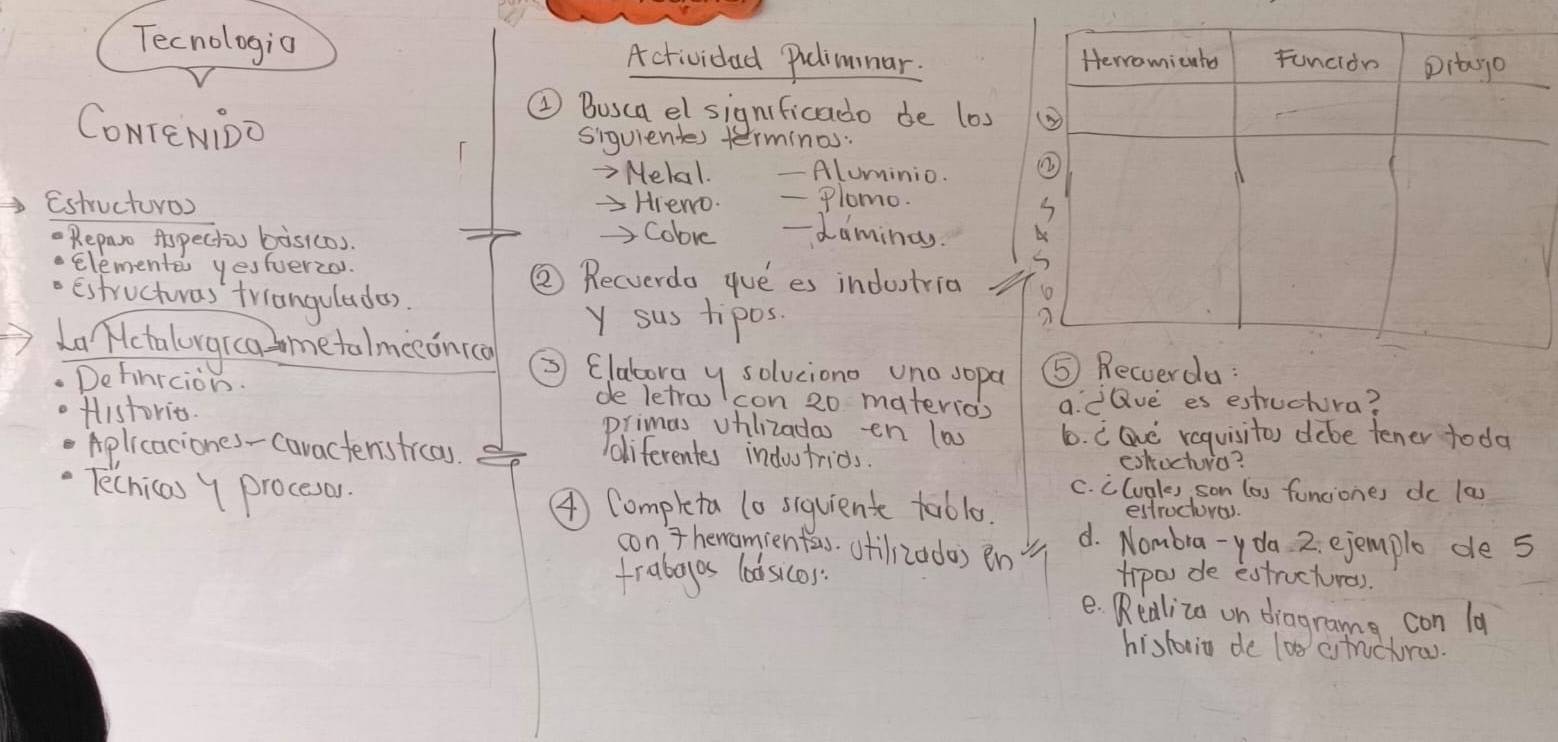 Tecnologia
CONTENIDO
→ Estructuras
• Repaso Aspectos básicos.
• Elementos y esfuerzos.
• Estructuras trianguladas.
→ La Metalurgica - metalmecánica
• Definición.
• Historia.
• Aplicaciones - características.
• Técnicas y procesos.
Actividad Preliminar.
① Busca el significado de los
siguientes términos:
→ Metal. — Aluminio.
→ Hierro. — Plomo.
→ Cobre — Láminas.
② Recuerda qué es industria
y sus tipos.
③ Elabora y soluciona una sopa
de letras con 20 materias
primas utilizadas en las
diferentes industrias.
④ Completa la siguiente tabla.
con 7 herramientas. utilizadas en
trabajos básicos:
Herramienta Función Dibujo
②
4
5
6
7
⑤ Recuerda:
a. ¿Qué es estructura?
b. ¿Qué requisitos debe tener toda
estructura?
c. ¿Cuales son las funciones de las
estructuras.
d. Nombra - y da 2. ejemplo de 5
tipos de estructuras.
e. Realiza un diagrama con la
historia de las estructuras.